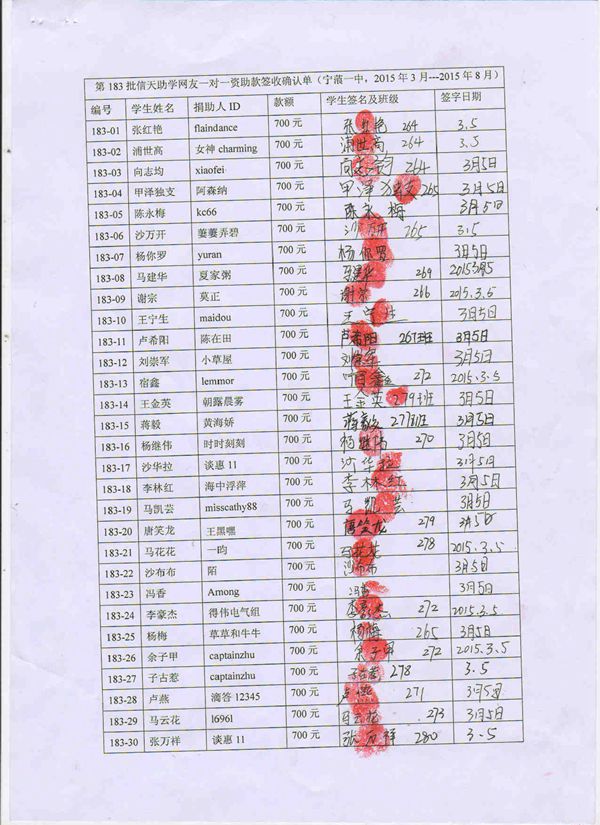 第 183 批信天助学网友一对一资助款签收确认单（宁蒗一中，2015 年 3 月---2015 年 8 月）
编号 学生姓名 捐助人 ID 款额 学生签名及班级 签字日期
183-01 张红艳 flaindance 700 元 张红艳 264 3.5
183-02 浦世高 女神 charming 700 元 浦世高 264 3.5
183-03 向志均 xiaofei 700 元 向志均 264 3月5日
183-04 甲泽独支 阿森纳 700 元 甲泽独支 265 3月5日
183-05 陈永梅 kc66 700 元 陈永梅 3月5日
183-06 沙万开 萋萋弄碧 700 元 沙万开 265 3.5
183-07 杨你罗 yuran 700 元 杨你罗 3月5日
183-08 马建华 夏家粥 700 元 马建华 269 2015.3月5
183-09 谢宗 莫正 700 元 谢宗 266 2015.3.5
183-10 王宁生 maidou 700 元 王宁生 3月5日
183-11 卢希阳 陈在田 700 元 卢希阳 267班 3月5日
183-12 刘崇军 小草屋 700 元 刘崇军 3月5日
183-13 宿鑫 lemmor 700 元 272 2015.3.5
183-14 王金英 朝露晨雾 700 元 王金英 279班 3月5日
183-15 蒋毅 黄海娇 700 元 蒋毅 277班 3月5日
183-16 杨继伟 时时刻刻 700 元 杨继伟 270 3月5日
183-17 沙华拉 谈惠 11 700 元 沙华拉 3月5日
183-18 李林红 海中浮萍 700 元 李林红 3月5日
183-19 马凯芸 misscathy88 700 元 马凯芸 3月5日
183-20 唐笑龙 王黑嘿 700 元 唐笑龙 279 3月5日
183-21 马花花 一昀 700 元 马花花 278 2015.3.5
183-22 沙布布 陌 700 元 沙布布 3月5日
183-23 冯香 Among 700 元 冯香 3月5日
183-24 李豪杰 得伟电气组 700 元 李豪杰 272 2015.3.5
183-25 杨梅 草草和牛牛 700 元 杨梅 265 3月5日
183-26 余子甲 captainzhu 700 元 余子甲 272 2015.3.5
183-27 子古惹 captainzhu 700 元 子古惹 278 3.5
183-28 卢燕 滴答 12345 700 元 卢燕 271 3月5日
183-29 马云花 l6961 700 元 马云花 273 3月5日
183-30 张万祥 谈惠 11 700 元 张万祥 280 3.5